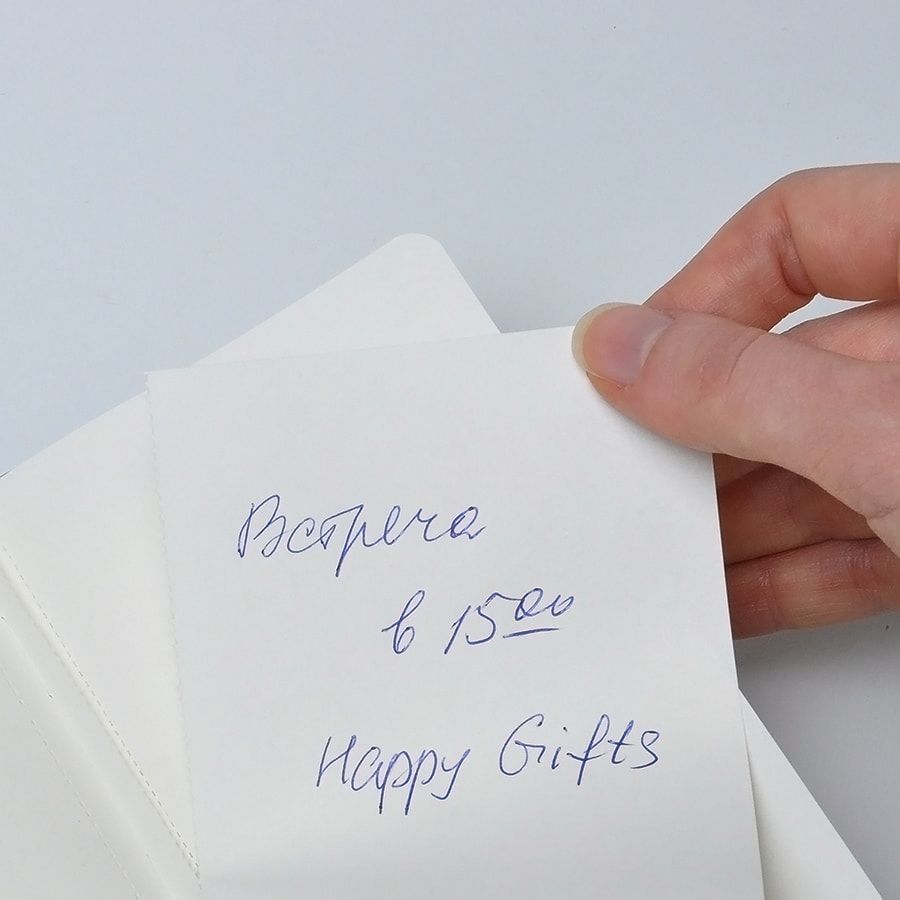 Встреча
в 15⁰⁰
Happy Gifts